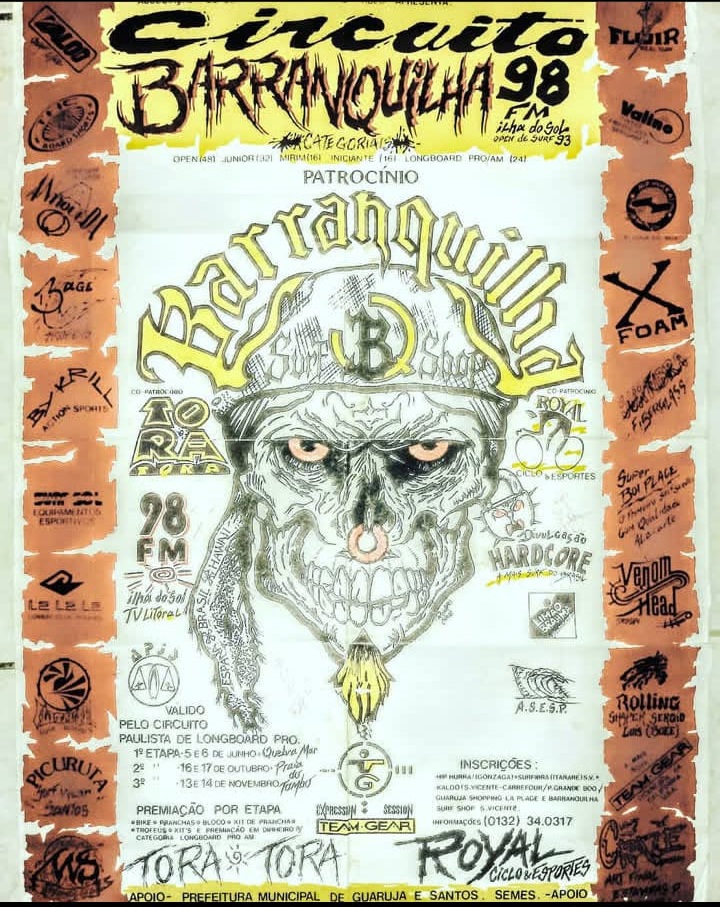 APRESENTA:
Circuito
BARRANQUILHA 98
FM
ilha do Sol
OPEN de SURF 93
CATEGORIAS
OPEN (48) JUNIOR (32) MIRIM (16) INICIANTE (16) LONGBOARD PRO/AM (24)
PATROCÍNIO
Barranquilha
Surf B Shop
CO-PATROCÍNIO
TORA
TORA
98
FM
ilha do Sol
TV Litoral
CO-PATROCINIO
ROYAL
CICLO & ESPORTES
Divulgação
HARDCORE
A MAIS SURF DO BRASIL
BRASIL HAWAII
A.S.E.S.P.
VALIDO
PELO CIRCUITO
PAULISTA DE LONGBOARD PRO.
1º ETAPA-5 E 6 DE JUNHO-Quebra Mar
2º " -16 E 17 DE OUTUBRO-Praia do Tombo
3º " -13 E 14 DE NOVEMBRO
PREMIAÇÃO POR ETAPA
•BIKE •PRANCHAS •BLOCO •KIT DE PRANCHA•
•TROFEUS •KIT'S E PREMIAÇÃO EM DINHEIRO P/
CATEGORIA LONGBOARD PRO AM.
EXPRESSION SESSION
TEAM-GEAR
INSCRIÇÕES:
HIP HURRA (GONZAGA)•SURFIBRA (ITARARE) S.V.•
KALDO (S.VICENTE-CARREFOUR/P.GRANDE BOO/
GUARUJA SHOPPING LA PLAGE E BARRANQUILHA
SURF SHOP S.VICENTE.
INFORMAÇÕES (0132) 34.0317
TORA TORA
ROYAL
CICLO & ESPORTES
APOIO- PREFEITURA MUNICIPAL DE GUARUJA E SANTOS. SEMES.-APOIO
BY KRILL
ACTION SPORTS
SURF SOL
EQUIPAMENTOS
ESPORTIVOS
La La La
PICURUTA
SANTOS
WS
FLUIR
Valino
X
FOAM
FIBERGLASS
Super
BOI PLACE
Venom
Head
ROLLING
SHAPER SERGIO
LUIS
TEAM GEAR
ART FINAL